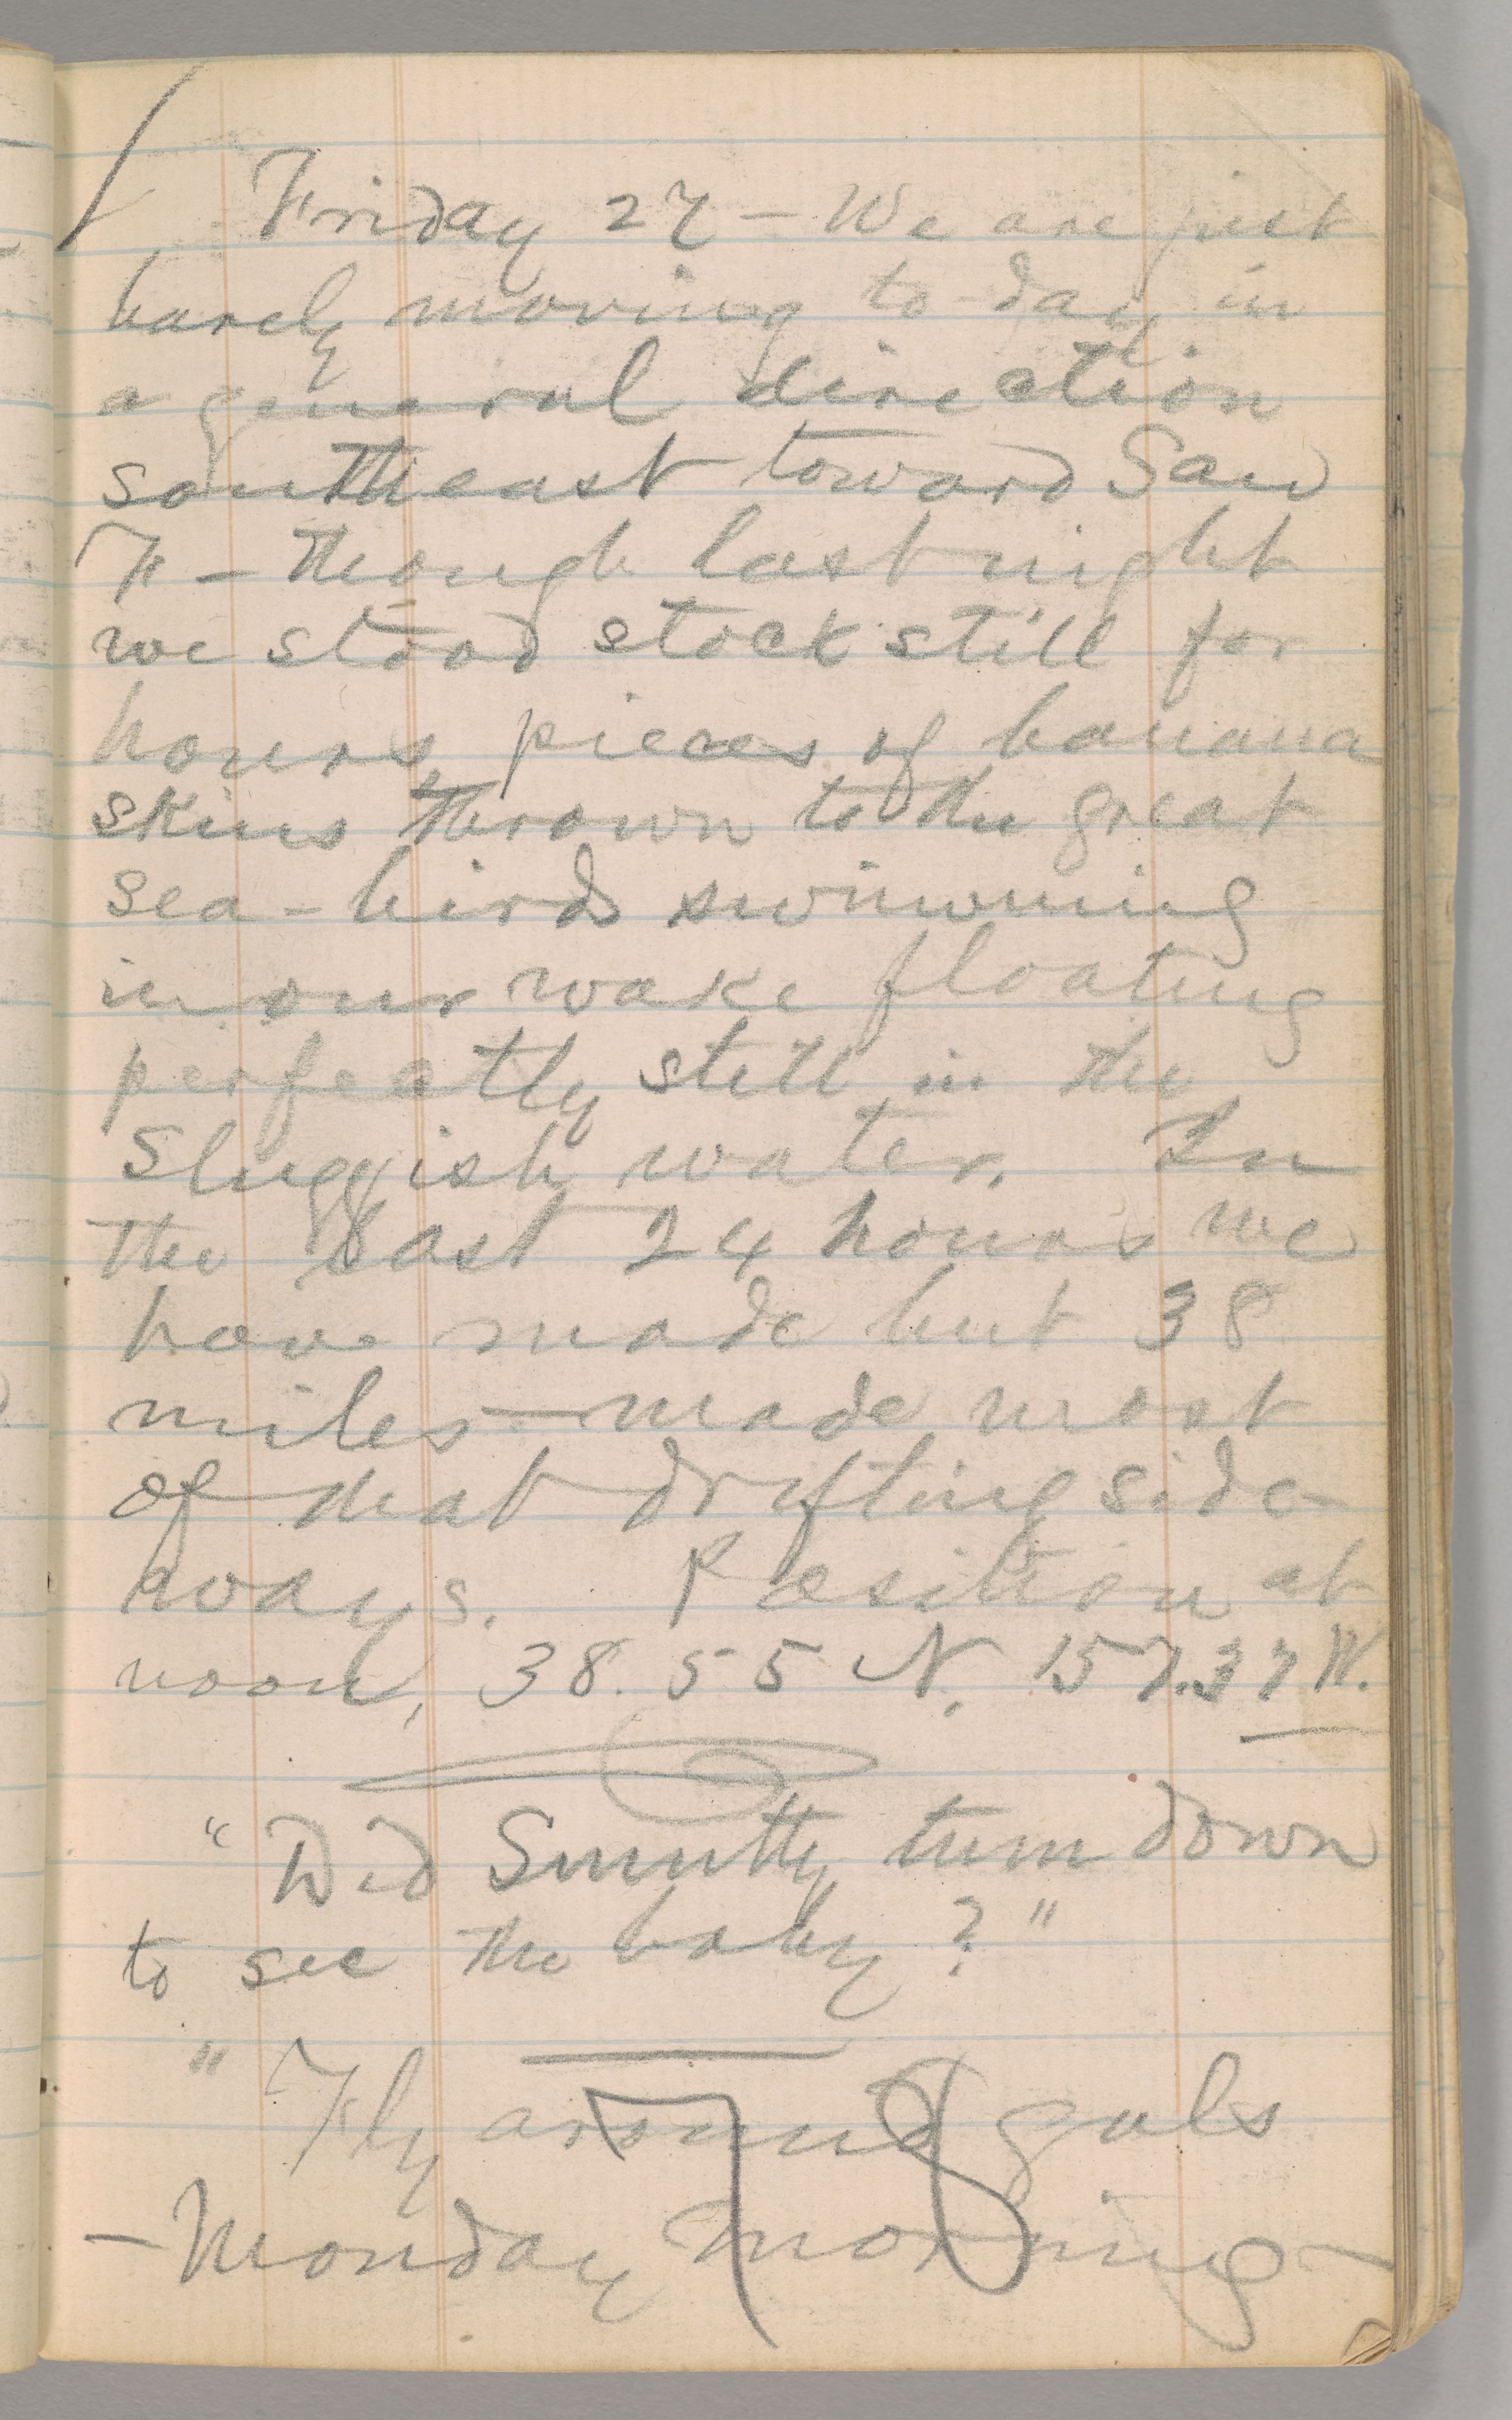 Friday 27 — We are just
barely moving to-day in
a general direction
southeast toward San
F — though last night
we stood stock still for
hours, pieces of banana
skins thrown to the great
sea-birds swimming
in our wake floating
perfectly still in the
sluggish water. In
the last 24 hours we
have made but 38
miles — made most
of that drifting side-
ways. Position at
noon, 38.55 N. 157.37 W.
"Did Smutty turn down
to see the baby?"
"Fly around gals
— Monday morning —
78